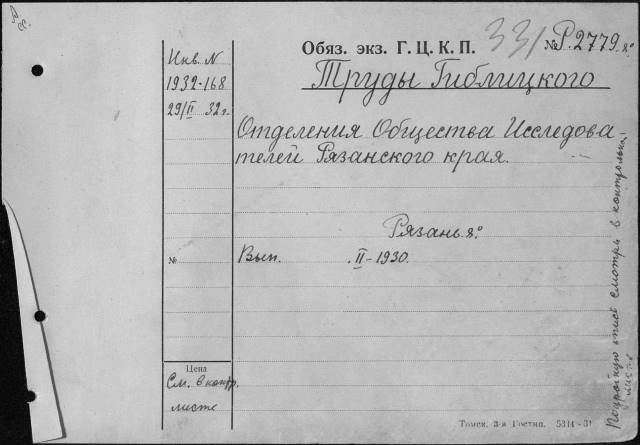 Обяз. экз. Г. Ц. К. П.
331
№ Р.2779. 8°
Инв. N
1932-168
29/II 32 г.
Труды Гиблицкого
Отделения Общества Исследова-
телей Рязанского края.
Рязань 8°.
№
Вып. II-1930.
Цена
См. в контр.
листе
Подробную опись смотри в контрольном
листе
Томск, 3-я Гостип. 5314-31